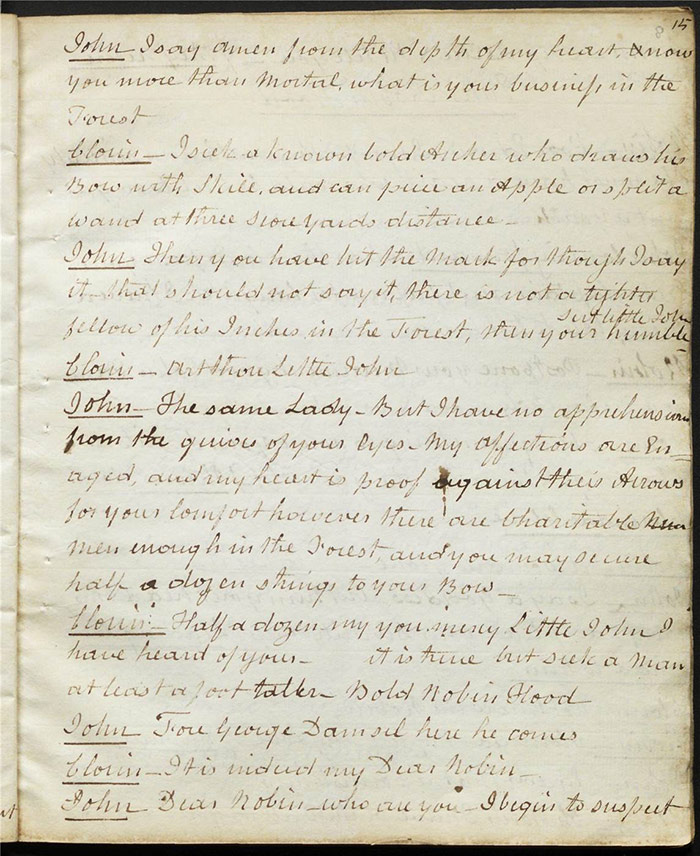 15
John I say amen from the depth of my heart. know
you more than Mortal, what is your business in the
Forest
Clorin - I seek a known bold Archer who draws his
Bow with Skill, and can piece an Apple or split a
wand at three score yards distance -
John Then you have hit the Mark for though I say
it - that should not say it, there is not a tighter
servt little John
fellow of his Inches in the Forest, then your humble
Clorin - art thou Little John
John - The same Lady - But I have no apprehensions
from the quiver of your Eyes - My affections are En=
aged, and my heart is proof against their Arrows
for your Comfort however there are Charitable
men enough in the Forest, and you may secure
half a dozen strings to your Bow -
Clorin - Half a dozen my you merry Little John I
have heard of your - it is true but seek a Man
at least a foot taller - Bold Robin Hood
John Fore George Damsel here he comes
Clorin - It is indeed my Dear Robin -
John Dear Robin - who are you - I begin to suspect